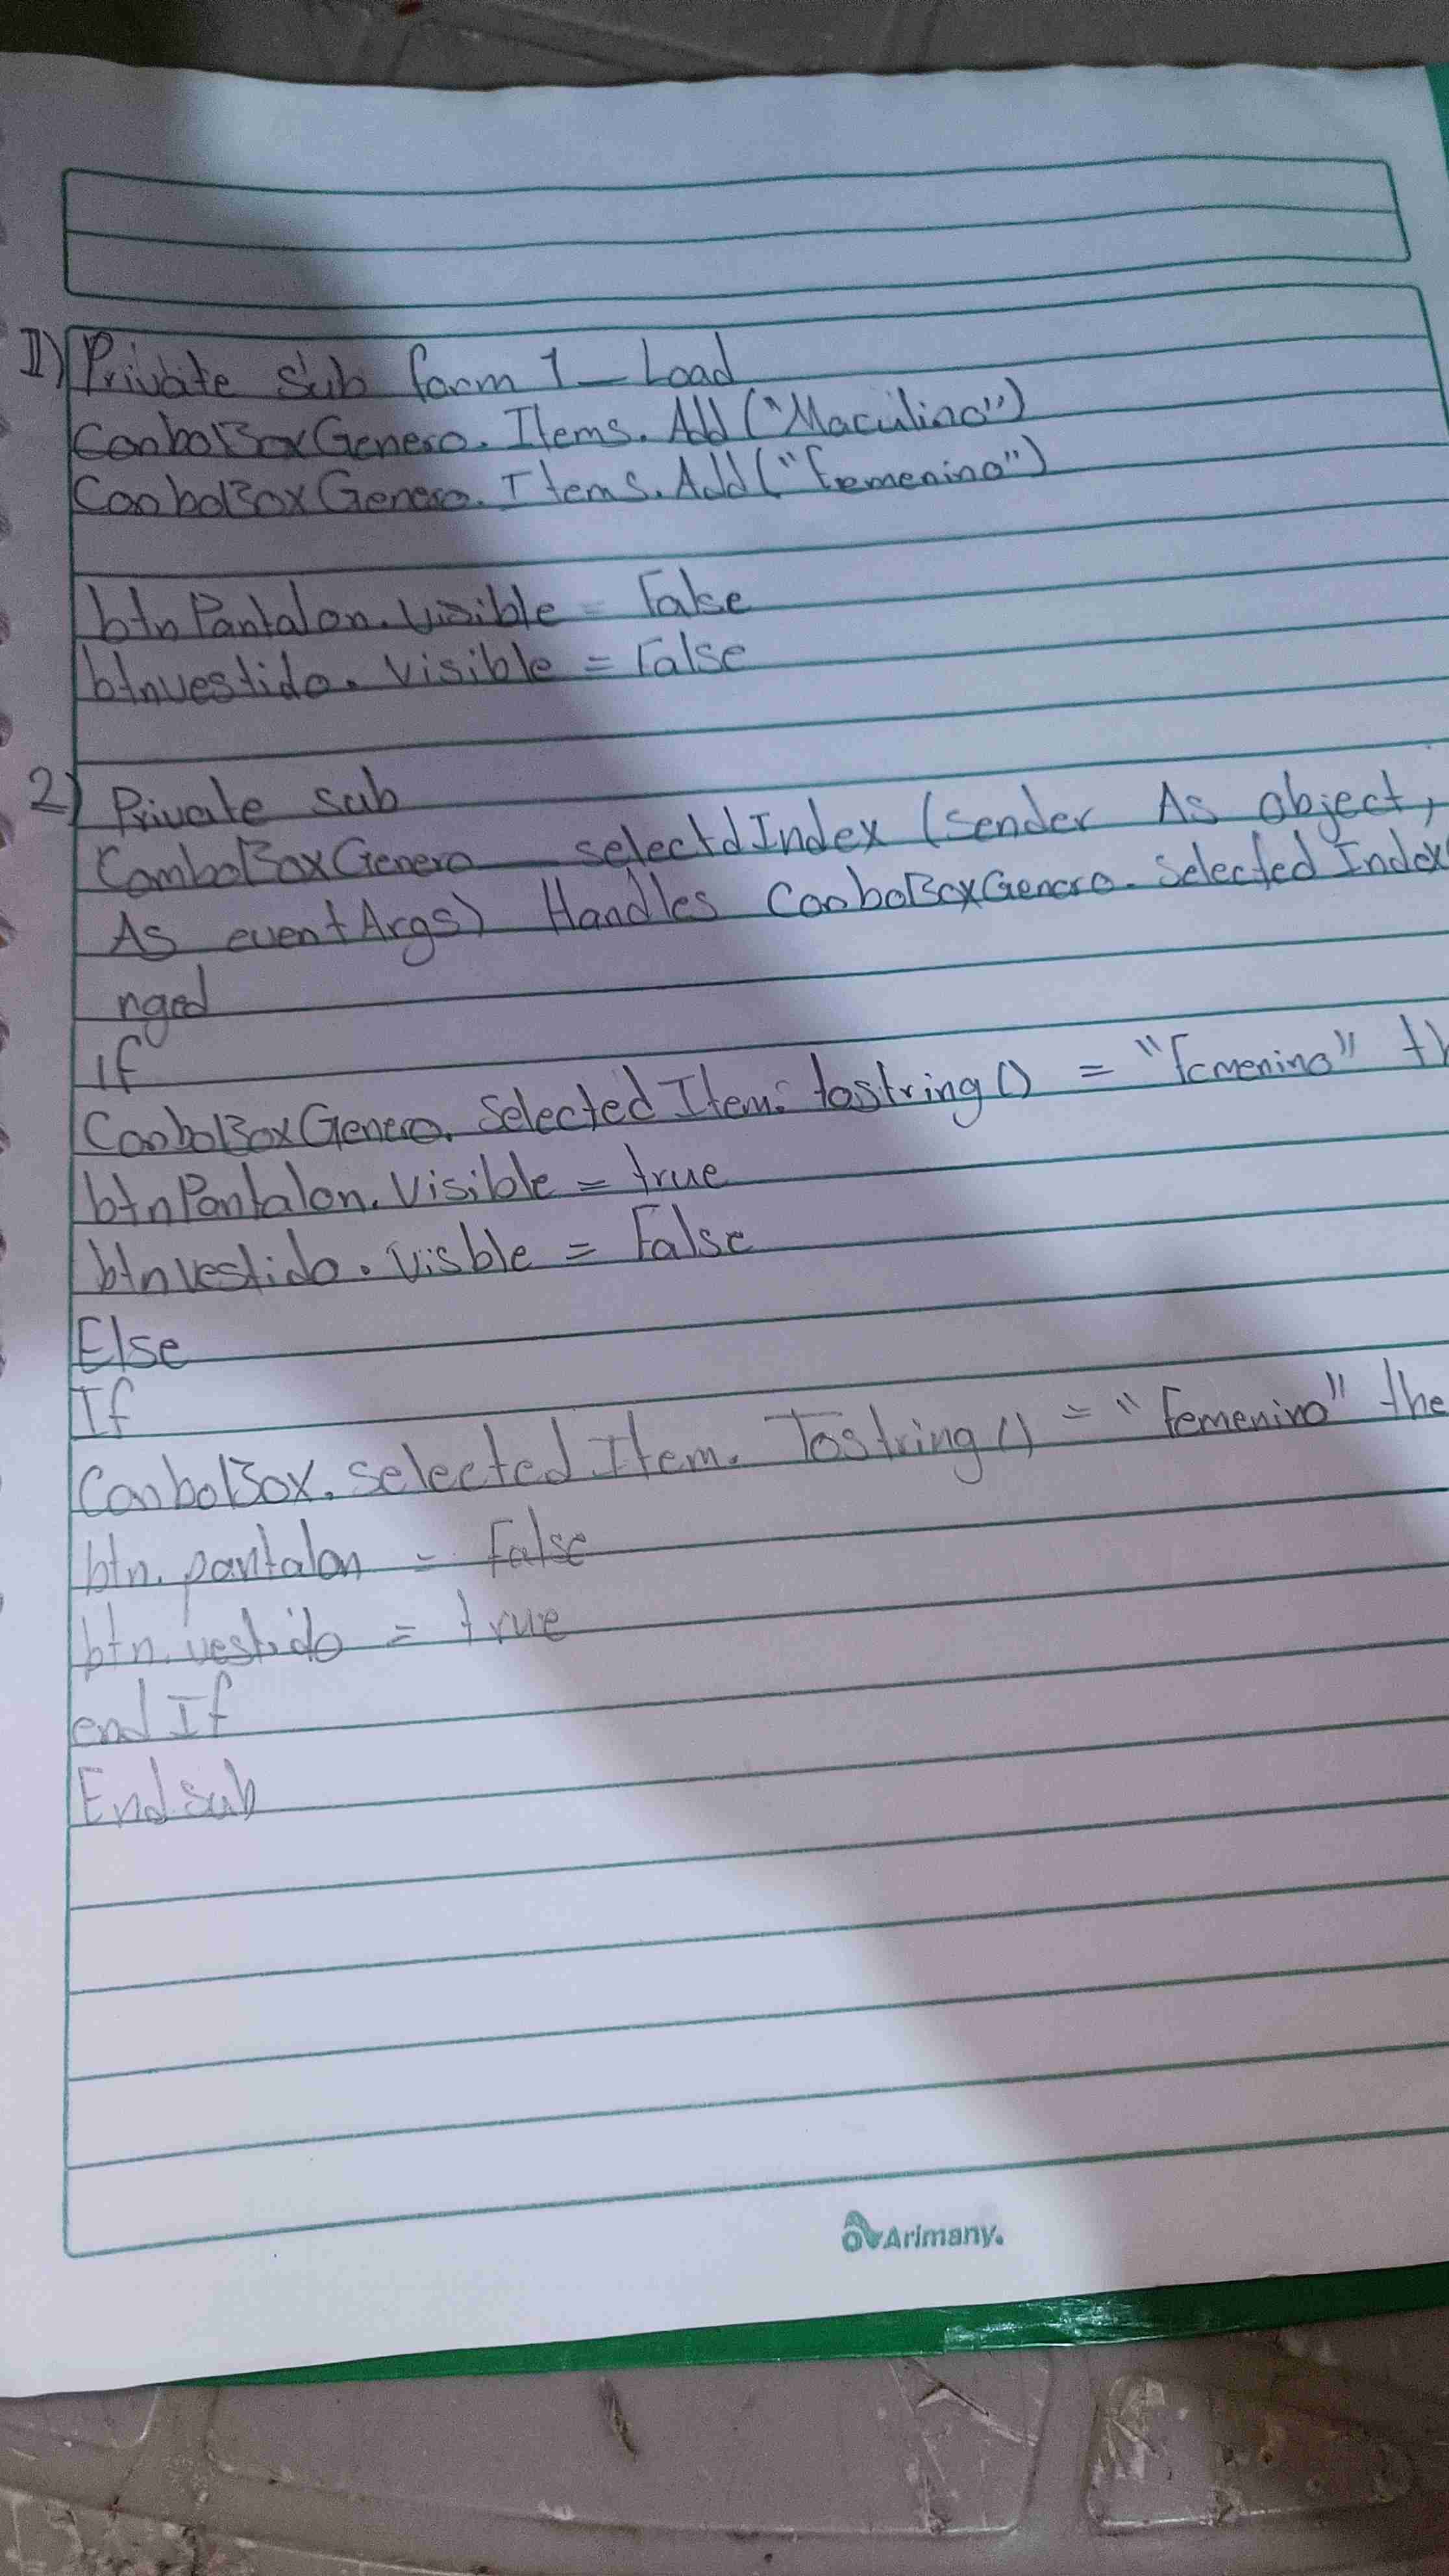 II) Private Sub form 1_Load
ComboBoxGenero. Items. Add ("Maculino")
ComboBoxGenero. Items. Add ("femenino")
btnPantalon. visible = False
btnvestido. visible = False
2) Private sub
ComboBoxGenero_selectdIndex (sender As object,
As eventArgs) Handles ComboBoxGenero. Selected Index
nged
if
ComboBoxGenero. SelectedItem. tostring() = "femenino" th
btnPantalon. Visible = true
btnvestido. Visble = False
Else
If
ComboBox. selectedItem. Tostring() = "femenino" the
btn. pantalon = False
btn. vestido = true
end If
End sub
Arimany.